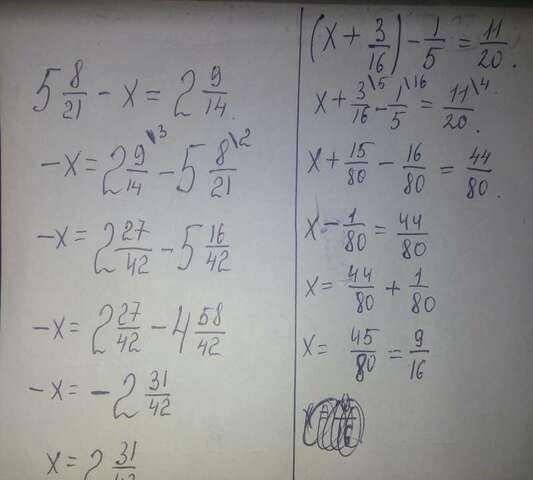 5 8/21 - x = 2 9/14.
-x = 2 9/14 \3 - 5 8/21 \2
-x = 2 27/42 - 5 16/42
-x = 2 27/42 - 4 58/42
-x = -2 31/42
x = 2 31/42
(x + 3/16) - 1/5 = 11/20.
x + 3/16 \5 - 1/5 \16 = 11/20 \4.
x + 15/80 - 16/80 = 44/80.
x - 1/80 = 44/80
x = 44/80 + 1/80
x = 45/80 = 9/16